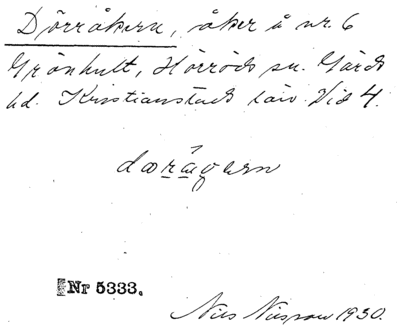 Djörråkern, åker å nr. 6
Grönhult, Hörröds sn. Gärds
hd. Kristianstads län. Vid 4.
Nr 5333.
Nils Nilsson 1930.